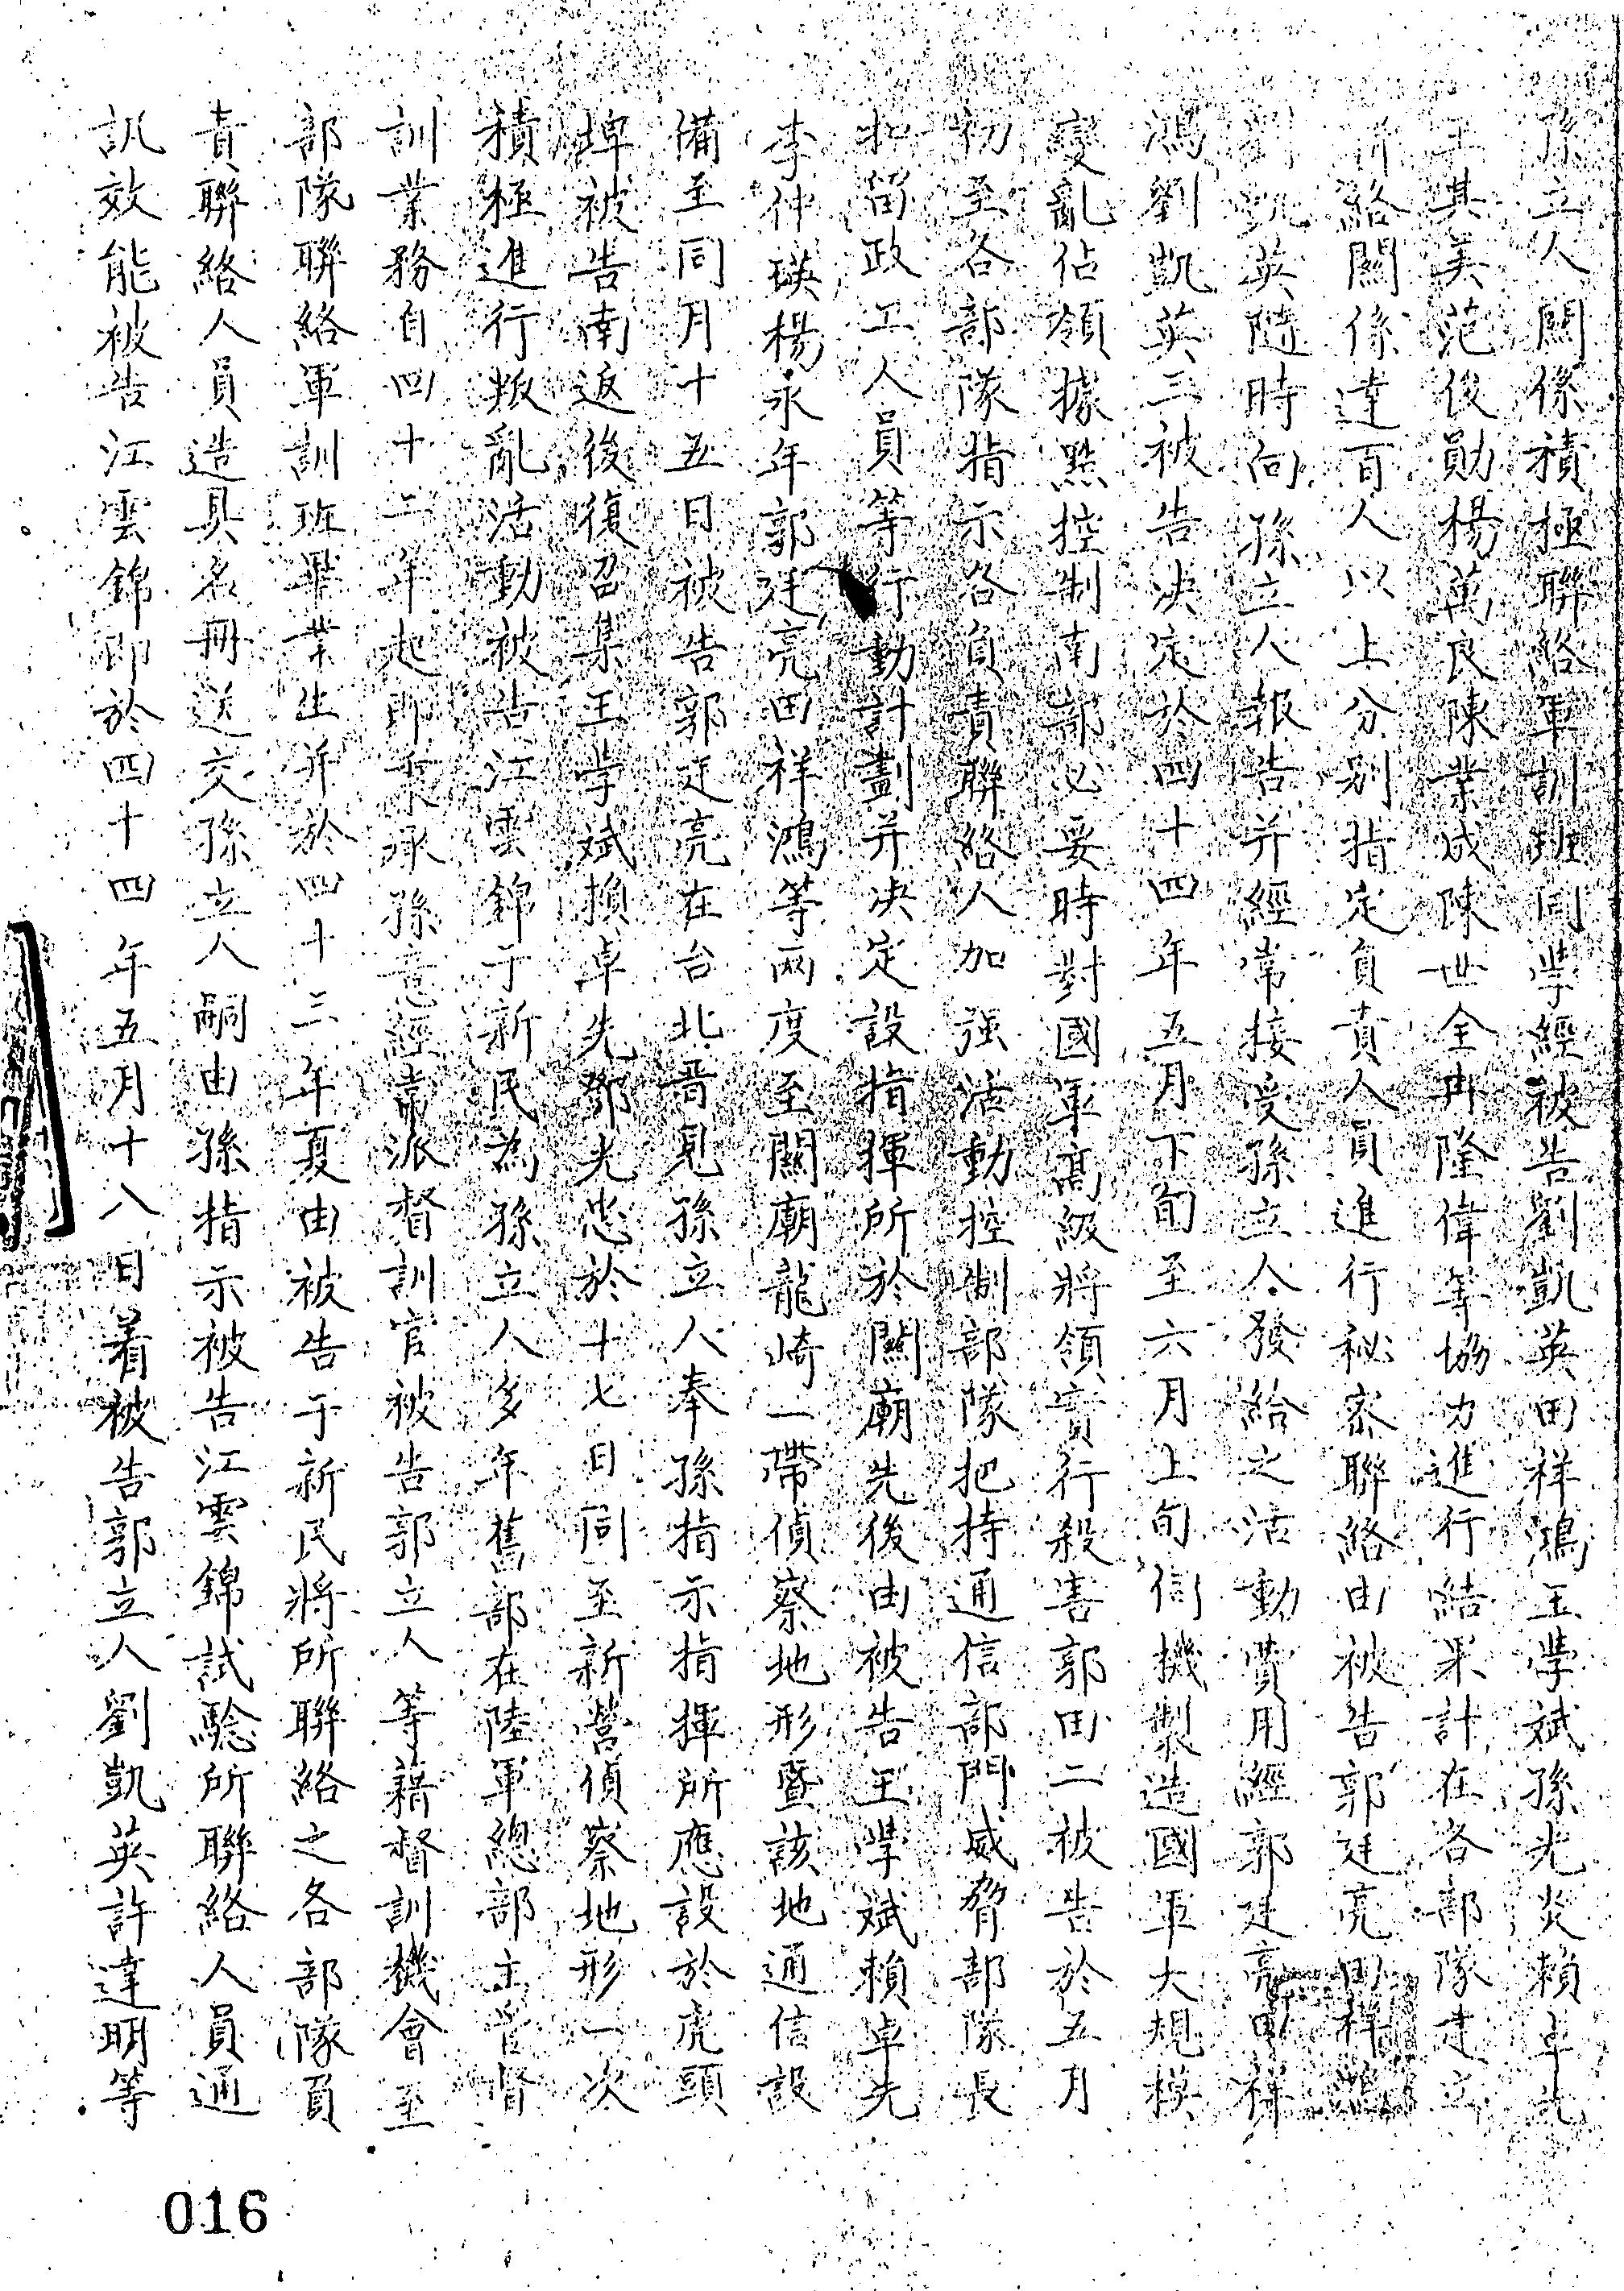 孫立人關係積極聯絡軍訓班同學經被告劉凱英田祥鴻王學斌孫光炎賴卓先
王其美范俊勛楊萬良陳業成陳世全冉隆偉等協力進行結果計在各部隊建立
聯絡關係達百人以上分別指定負責人員進行秘密聯絡由被告郭廷亮田祥鴻
劉凱英隨時向孫立人報告并經常接受孫立人發給之活動費用經郭廷亮田祥
鴻劉凱英三被告決定於四十四年五月下旬至六月上旬伺機製造國軍大規模
變亂佔領據點控制南部必要時對國軍高級將領實行殺害郭田二被告於五月
初至各部隊指示各負責聯絡人加强活動控制部隊把持通信部門威脅部隊長
扣留政工人員等行動計劃并決定設指揮所於關廟先後由被告王學斌賴卓先
李仲瑛楊永年郭廷亮田祥鴻等兩度至關廟龍崎一帶偵察地形暨該地通信設
備至同月十五日被告郭廷亮在台北晋見孫立人奉孫指示指揮所應設於虎頭
埤被告南返後復召集王學斌賴卓先鄧光忠於十七日同至新營偵察地形一次
積極進行叛亂活動被告江雲錦于新民為孫立人多年舊部在陸軍總部主管督
訓業務自四十二年起即秉承孫意經常派督訓官被告郭立人等藉督訓機會至
部隊聯絡軍訓班畢業生并於四十三年夏由被告于新民將所聯絡之各部隊員
責聯絡人員造具名冊送交孫立人嗣由孫指示被告江雲錦試驗所聯絡人員通
訊效能被告江雲錦即於四十四年五月十八日着被告郭立人劉凱英許達明等
016